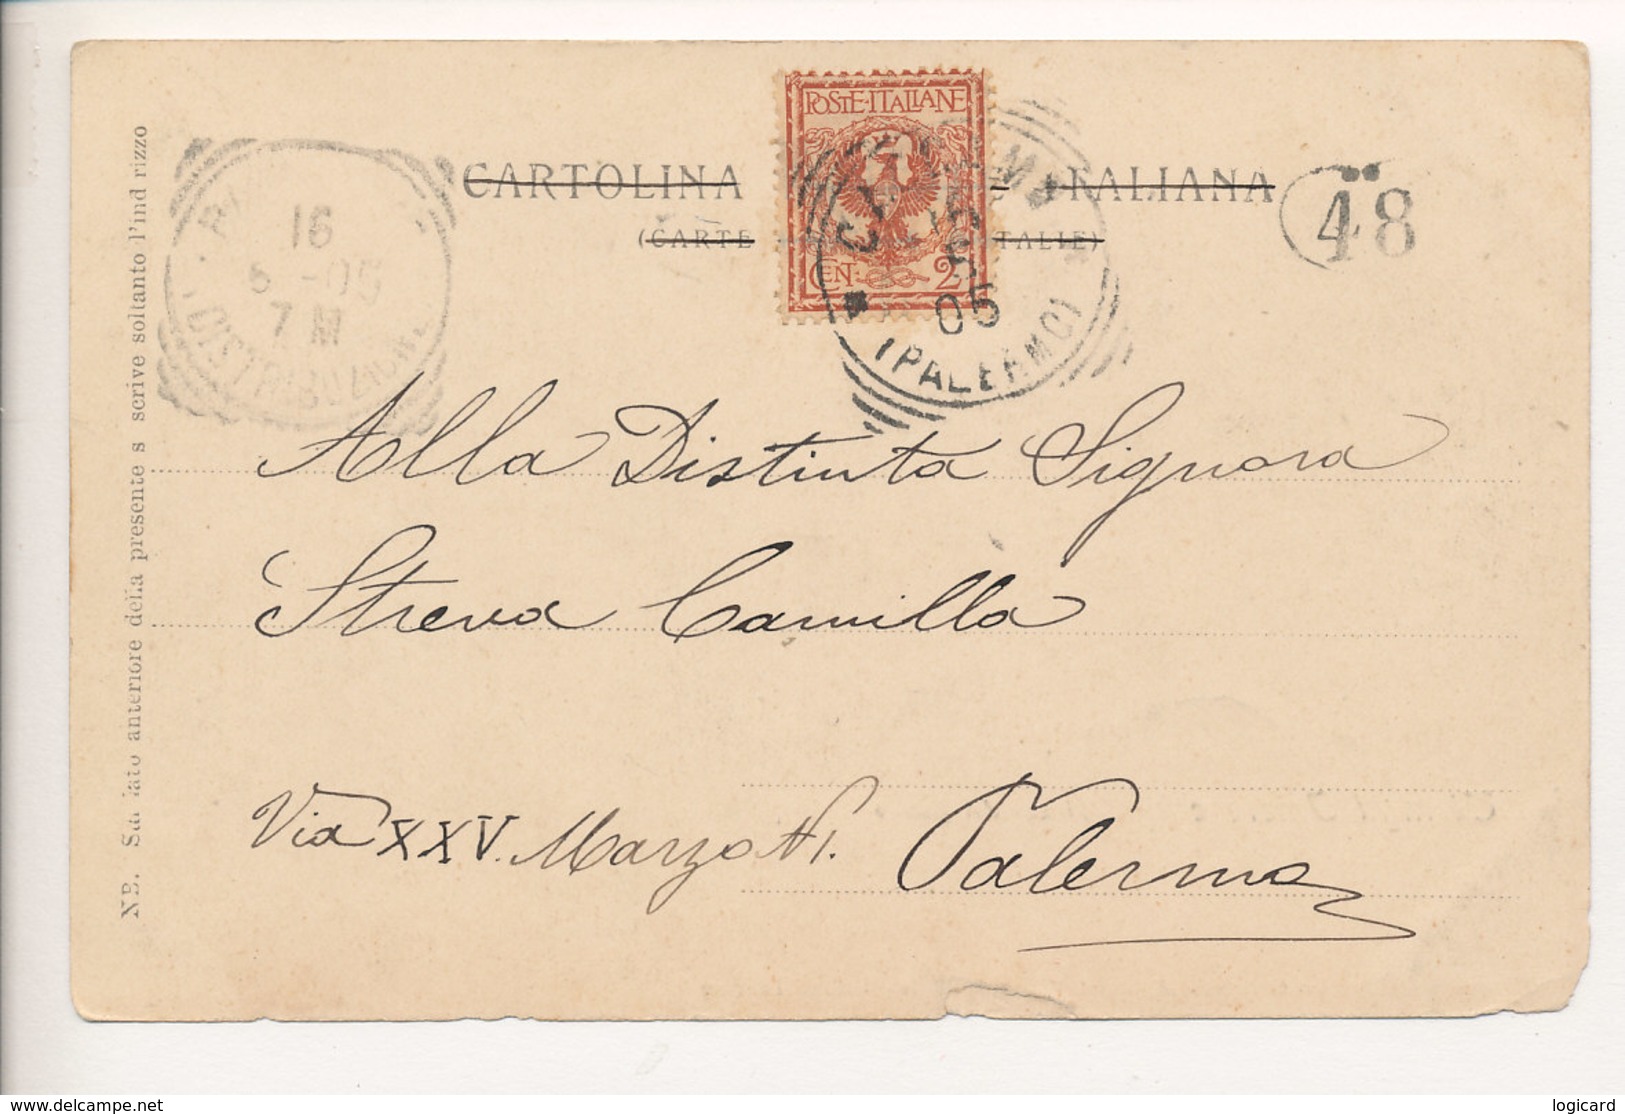 CARTOLINA ITALIANA
(CARTE ITALIE)
POSTE·ITALIANE
CEN. 2
15
5
05
(PALERMO)
16
5 - 05
7 M
DISTRIBUZIONE
48
Alla Distinta Signora
Streva Camilla
Via XXV. Marzo N 1.
Palermo
NB. Sul lato anteriore della presente si scrive soltanto l'indirizzo
www.delcampe.net
logicard